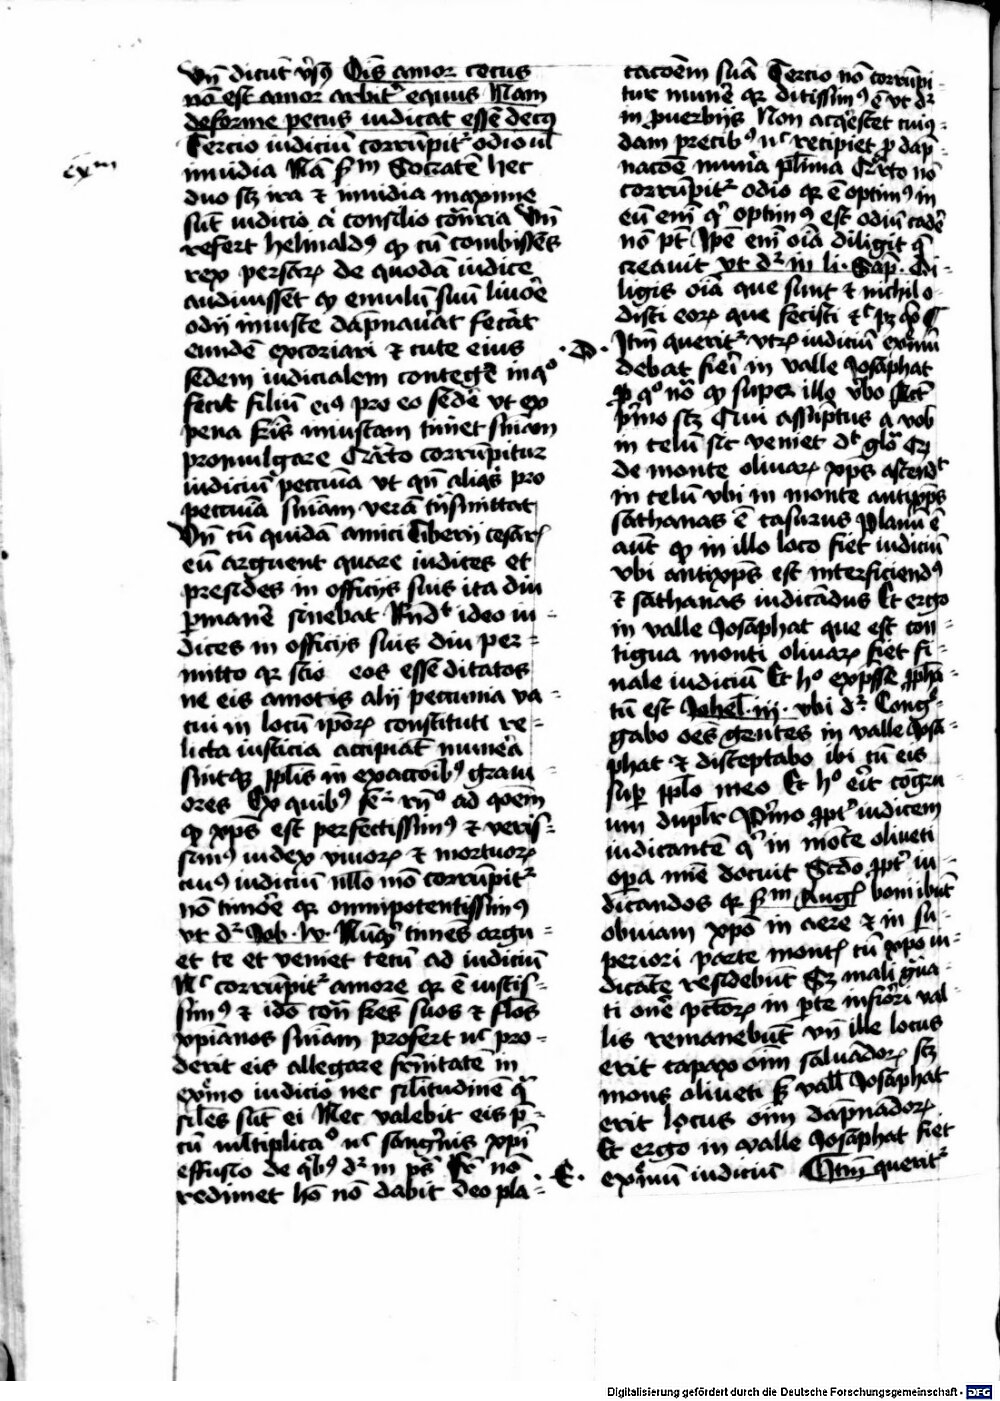 Vn̄ dicūt v̓sꝰ Oīs amor cecus
nō est amor arbitꝰ equus Nam
deforme pecus iudicat esse decꝰ
Tercio iudiciū corrūpitꝰ odio ul
inuidia Nā scd̄m Socratē hec
exm
duo scꝫ ira et inuidia maxime
sūt iudicio a consilio cōtraria Vn̄
refert helinaldꝰ qꝫ cū combisses
rex persarꝫ de quodā iudice
audiuissēt qꝫ emulū suū liuore
odij iniuste dāpnauāt fecāt
eundē excoriari et cute eius
sedem iudicialem contegē in qo
fecit filiū eiꝰ pro eo sedē vt ex
pena pris iniustam timet sniam
promulgare Qrto corrūpitur
iudiciū peccūia vt qn̄ aliqs pro
peccūia sniam verā trāsmittat
Vn̄ cū quidā amici Tiberij cesarꝭ
eū arguent quare iudices et
presides in officijs suis ita diu
ꝑmanē sinebat Rn̄dt ideo iu-
dices in officijs suis diu per-
mitto qr scio eos esse ditatos
ne eis amotis alij peccunia va-
cui in locū ipōrꝫ constituti re-
licta iusticia accipiāt munera
sintqꝫ pplis in exaccōibꝰ graui
ores Ex quibꝰ ad qōem
qꝫ xps est perfectissimꝰ et veris-
simꝰ iudex viuorꝫ et mortuorꝫ
cuiꝰ iudiciū nllo mō corrūpitꝰ
nō timore qr omnipotentissimꝰ
vt dꝰ Job Nūqd timēs argu-
et te et veniet tecū ad iudiciū
Nc corrūpitꝰ amore qr ē iustis-
simꝰ et idō cont̄ fres suos et filios
xpianos sniam profert nc pro-
derit eis allegare frnitatē in
extmo iudicio nec silitudinē qa
siles sūt ei Nec valebit eis p̄-
cū mltiplicao nc sangwis xpi
effusio de qbꝰ dꝰ in ps Fr nō
redimet hō nō dabit deo pla-
cacōem suā Tercio nō corrūpi
tur munē qr ditissimꝰ ē vt dꝰ
in puerbijs Non acqescet cuiꝰ-
dam precibꝰ nc recipiet ꝓ dāp-
nacōe mun̄a plima Qrto nō
corrūpitꝰ odio qr ē optimꝰ in
eū em̄ qi optimꝰ est odiū cadē
nō pt Ipse em̄ oīa diligit q̄
creauit vt dꝰ in li. Sap. Di-
ligis oīa que sunt et nichil o-
disti eorꝫ que fecisti
.D. Itm̄ queritꝰ vtrꝫ iudiciū extmū
debat fieri in valle Josaphat
Pro qo nō qꝫ super illo vbo
pmo scꝫ Qui assūptus a vob
in celū sic veniet dt glo
de monte oliuarꝫ xps ascendt
in celū vbi in monte antixps
sathanas ē casurus Planū ē
aūt qꝫ in illo loco fiet iudiciū
vbi antixps est interficiendꝰ
et sathanas iudicādus Et ergo
in valle Josaphat que est con-
tigua monti oliuarꝫ fiet fi-
nale iudiciū Et ho expsse ꝓpha
tū est Johel. iij. vbi dꝰ Cong-
gabo oēs gentes in valle Josa-
phat et disceptabo ibi cū eis
suꝑ pplo meo Et ho erit cogru
um duplr Pmo ꝓpt iudicem
iudicantē qi in mōte oliueti
opa mīe docuit Scdo ꝓpt iu-
dicandos qr scd̄m Augꝭ boni ibūt
obuiam xpo in aere et in su-
periori parte montꝭ cū xpo iu-
dicāte residebūt Sꝫ mali
ti onē pctorꝫ in ꝑte inferiori val-
lis remanebūt vn̄ ille locus
erit capax oīm saluādorꝫ scꝫ
mons oliueti vall Josaphat
erit locus oīm dāpnādorꝫ
Et ergo in valle Josaphat fiet
.E. extmū iudiciū Itm̄ queritꝰ
Digitalisierung gefördert durch die Deutsche Forschungsgemeinschaft - DFG